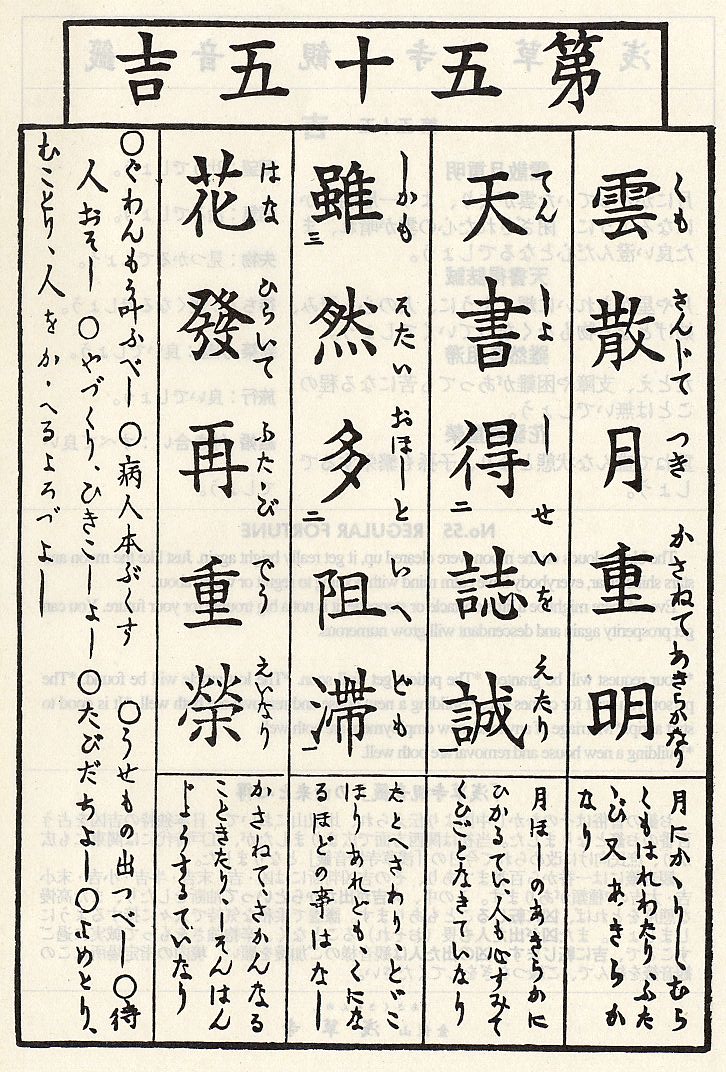 第五十五吉
雲散月重明
くも さんじて つき かさねてあきらかなり
月にかゝりしむら
くもはれわたりふた
ゝび又あきらか
なり
天書得誌誠
てん しよ しせいを えたり
二 一
月ほしのあきらかに
ひかるてい人も心すみて
くひごゝなきていなり
雖然多阻滞
しかも そたい おほしと いへ ども
三 二 一
たとへさわりことどこ
ほりあれどもくにな
るほどの事はなし
花發再重榮
はな ひらいて ふたゝび でう えいなり
かさねてさかんなる
こときたりしそんはん
じようするていなり
○ぐわんもう叶ふべし ○病人本ぶくす ○うせもの出づべし ○待
人おそし ○やづくり、ひきこしよし ○たびだちよし ○よめとり、
むことり、人をかゝへるよろづよし